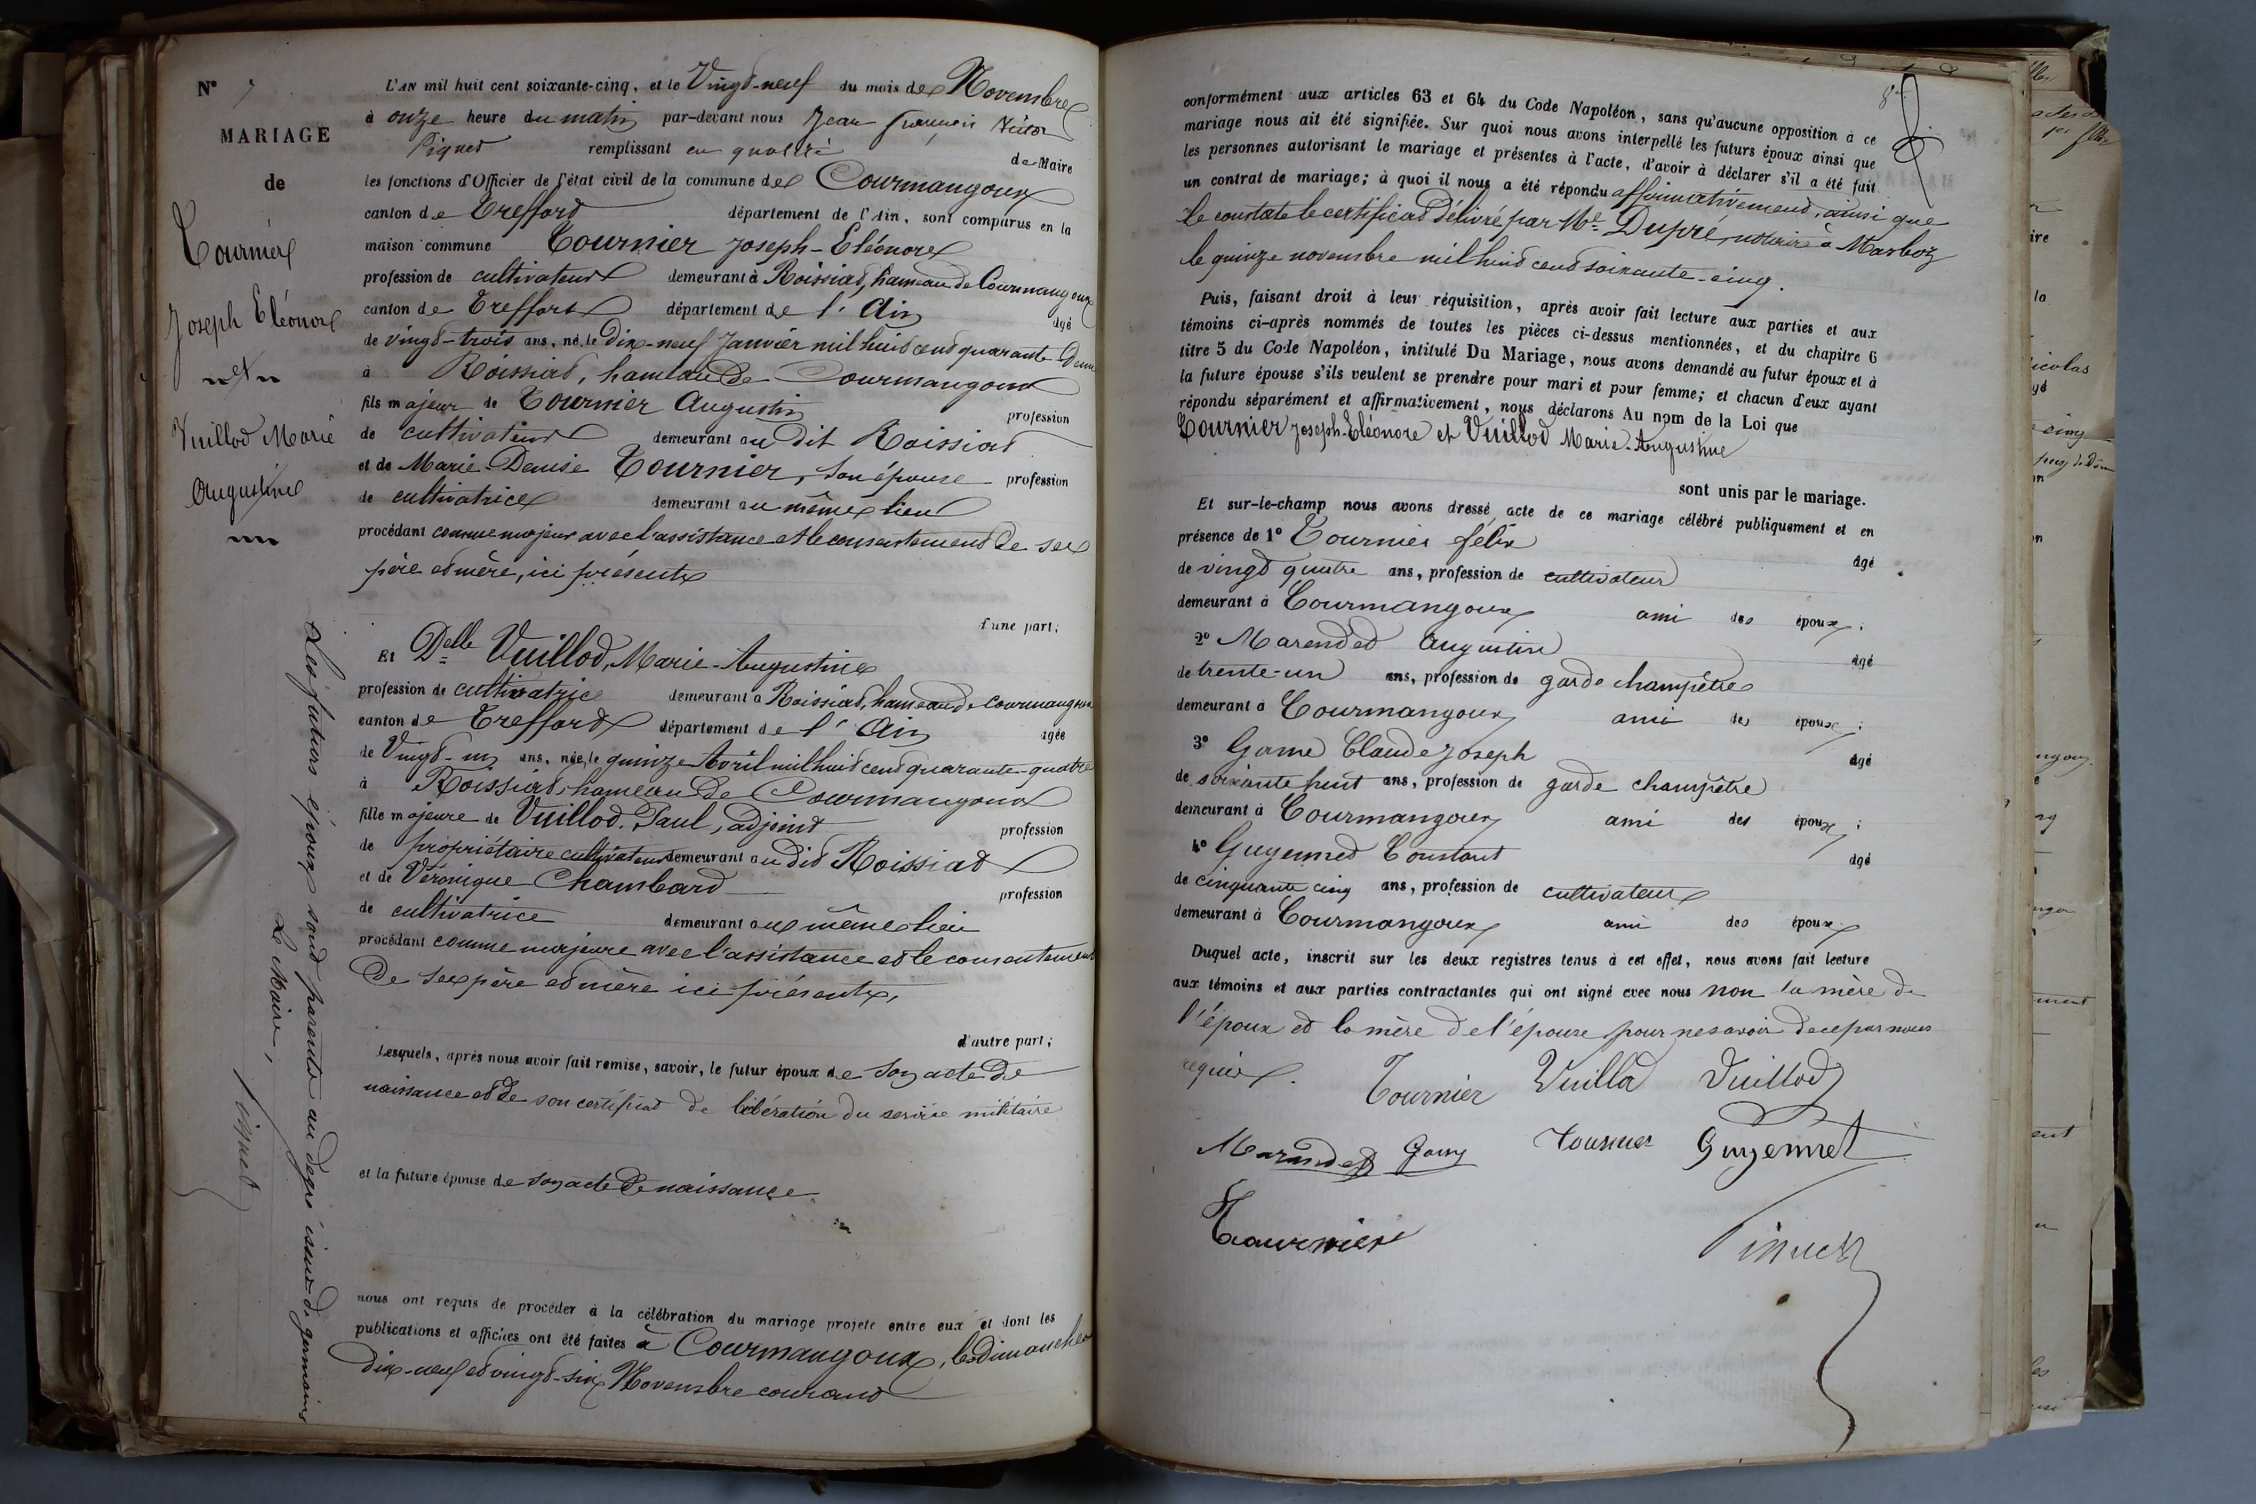 N° 7
MARIAGE
de
Tournier
Joseph Eléonore
et
Vuillod Marie
Augustine
L'AN mil huit cent soixante-cinq, et le Vingt-neuf du mois de Novembre
à onze heure du matin par-devant nous Jean François Victor
Piquet remplissant en qualité de Maire
les fonctions d'Officier de l'état civil de la commune de Courmangoux
canton de Treffort département de l'Ain, sont comparus en la
maison commune Tournier Joseph-Eléonore
profession de cultivateur demeurant à Roissiat, hameau de Courmangoux
canton de Treffort département de l'Ain âgé
de vingt-trois ans, né, le Dix-neuf Janvier mil huit cent quarante-Deux
à Roissiat, hameau de Courmangoux
fils majeur de Tournier Augustin profession
de cultivateur demeurant au dit Roissiat
et de Marie-Denise Tournier, son épouse profession
de cultivatrice demeurant au même lieu
procédant comme majeur avec l'assistance et le consentement de ses
père et mère, ici présents
d'une part;
Et Delle Vuillod, Marie-Augustine
profession de cultivatrice demeurant à Roissiat, hameau de Courmangoux
canton de Treffort département de l'Ain âgée
de Vingt-un ans, née, le quinze Avril mil huit cent quarante-quatre
à Roissiat, hameau de Courmangoux
fille majeure de Vuillod, Paul, adjoint profession
de propriétaire cultivateur demeurant au dit Roissiat
et de Véronique Chambard profession
de cultivatrice demeurant au même lieu
procédant comme majeure avec l'assistance et le consentement
De ses père et mère ici présents,
d'autre part;
Lesquels, après nous avoir fait remise, savoir, le futur époux de son acte de
naissance et de son certificat de libération du service militaire
et la future épouse de son acte de naissance
nous ont requis de procéder à la célébration du mariage projeté entre eux et dont les
publications et affiches ont été faites à Courmangoux, les dimanches
dix-neuf et vingt-six Novembre courant
Les futurs époux sont parents au degré issus de germains
Le Maire,
Piquet
8
conformément aux articles 63 et 64 du Code Napoléon, sans qu'aucune opposition à ce
mariage nous ait été signifiée. Sur quoi nous avons interpellé les futurs époux ainsi que
les personnes autorisant le mariage et présentes à l'acte, d'avoir à déclarer s'il a été fait
un contrat de mariage; à quoi il nous a été répondu affirmativement, ainsi que
le constate le certificat délivré par Me Dupré, notaire à Marboz
le quinze novembre mil huit cent soixante-cinq.
Puis, faisant droit à leur réquisition, après avoir fait lecture aux parties et aux
témoins ci-après nommés de toutes les pièces ci-dessus mentionnées, et du chapitre 6
titre 5 du Code Napoléon, intitulé Du Mariage, nous avons demandé au futur époux et à
la future épouse s'ils veulent se prendre pour mari et pour femme; et chacun d'eux ayant
répondu séparément et affirmativement, nous déclarons Au nom de la Loi que
Tournier Joseph-Eléonore et Vuillod Marie-Augustine
sont unis par le mariage.
Et sur-le-champ nous avons dressé acte de ce mariage célébré publiquement et en
présence de 1° Tournier félix âgé
de vingt quatre ans, profession de cultivateur
demeurant à Courmangoux ami des époux;
2° Marendet Augustin âgé
de trente-un ans, profession de garde champêtre
demeurant à Courmangoux ami des époux;
3° Claude Joseph âgé
de soixante huit ans, profession de garde champêtre
demeurant à Courmangoux ami des époux;
4° Guyennet Constant âgé
de cinquante cinq ans, profession de cultivateur
demeurant à Courmangoux ami des époux
Duquel acte, inscrit sur les deux registres tenus à cet effet, nous avons fait lecture
aux témoins et aux parties contractantes qui ont signé avec nous non la mère de
l'époux et la mère de l'épouse pour ne savoir de ce par nous
requises.
Tournier Vuillod Vuillod
Marandet Tournier Guyennet
Tournier Piquet